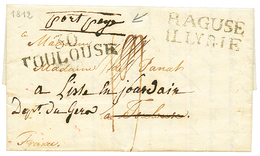 1812
port payé
RAGUSE
ILLYRIE
A Madame
30
TOULOUSE
Madame de Panat
a Lisle en jourdain
Dept. du Gers a Toulouse
France